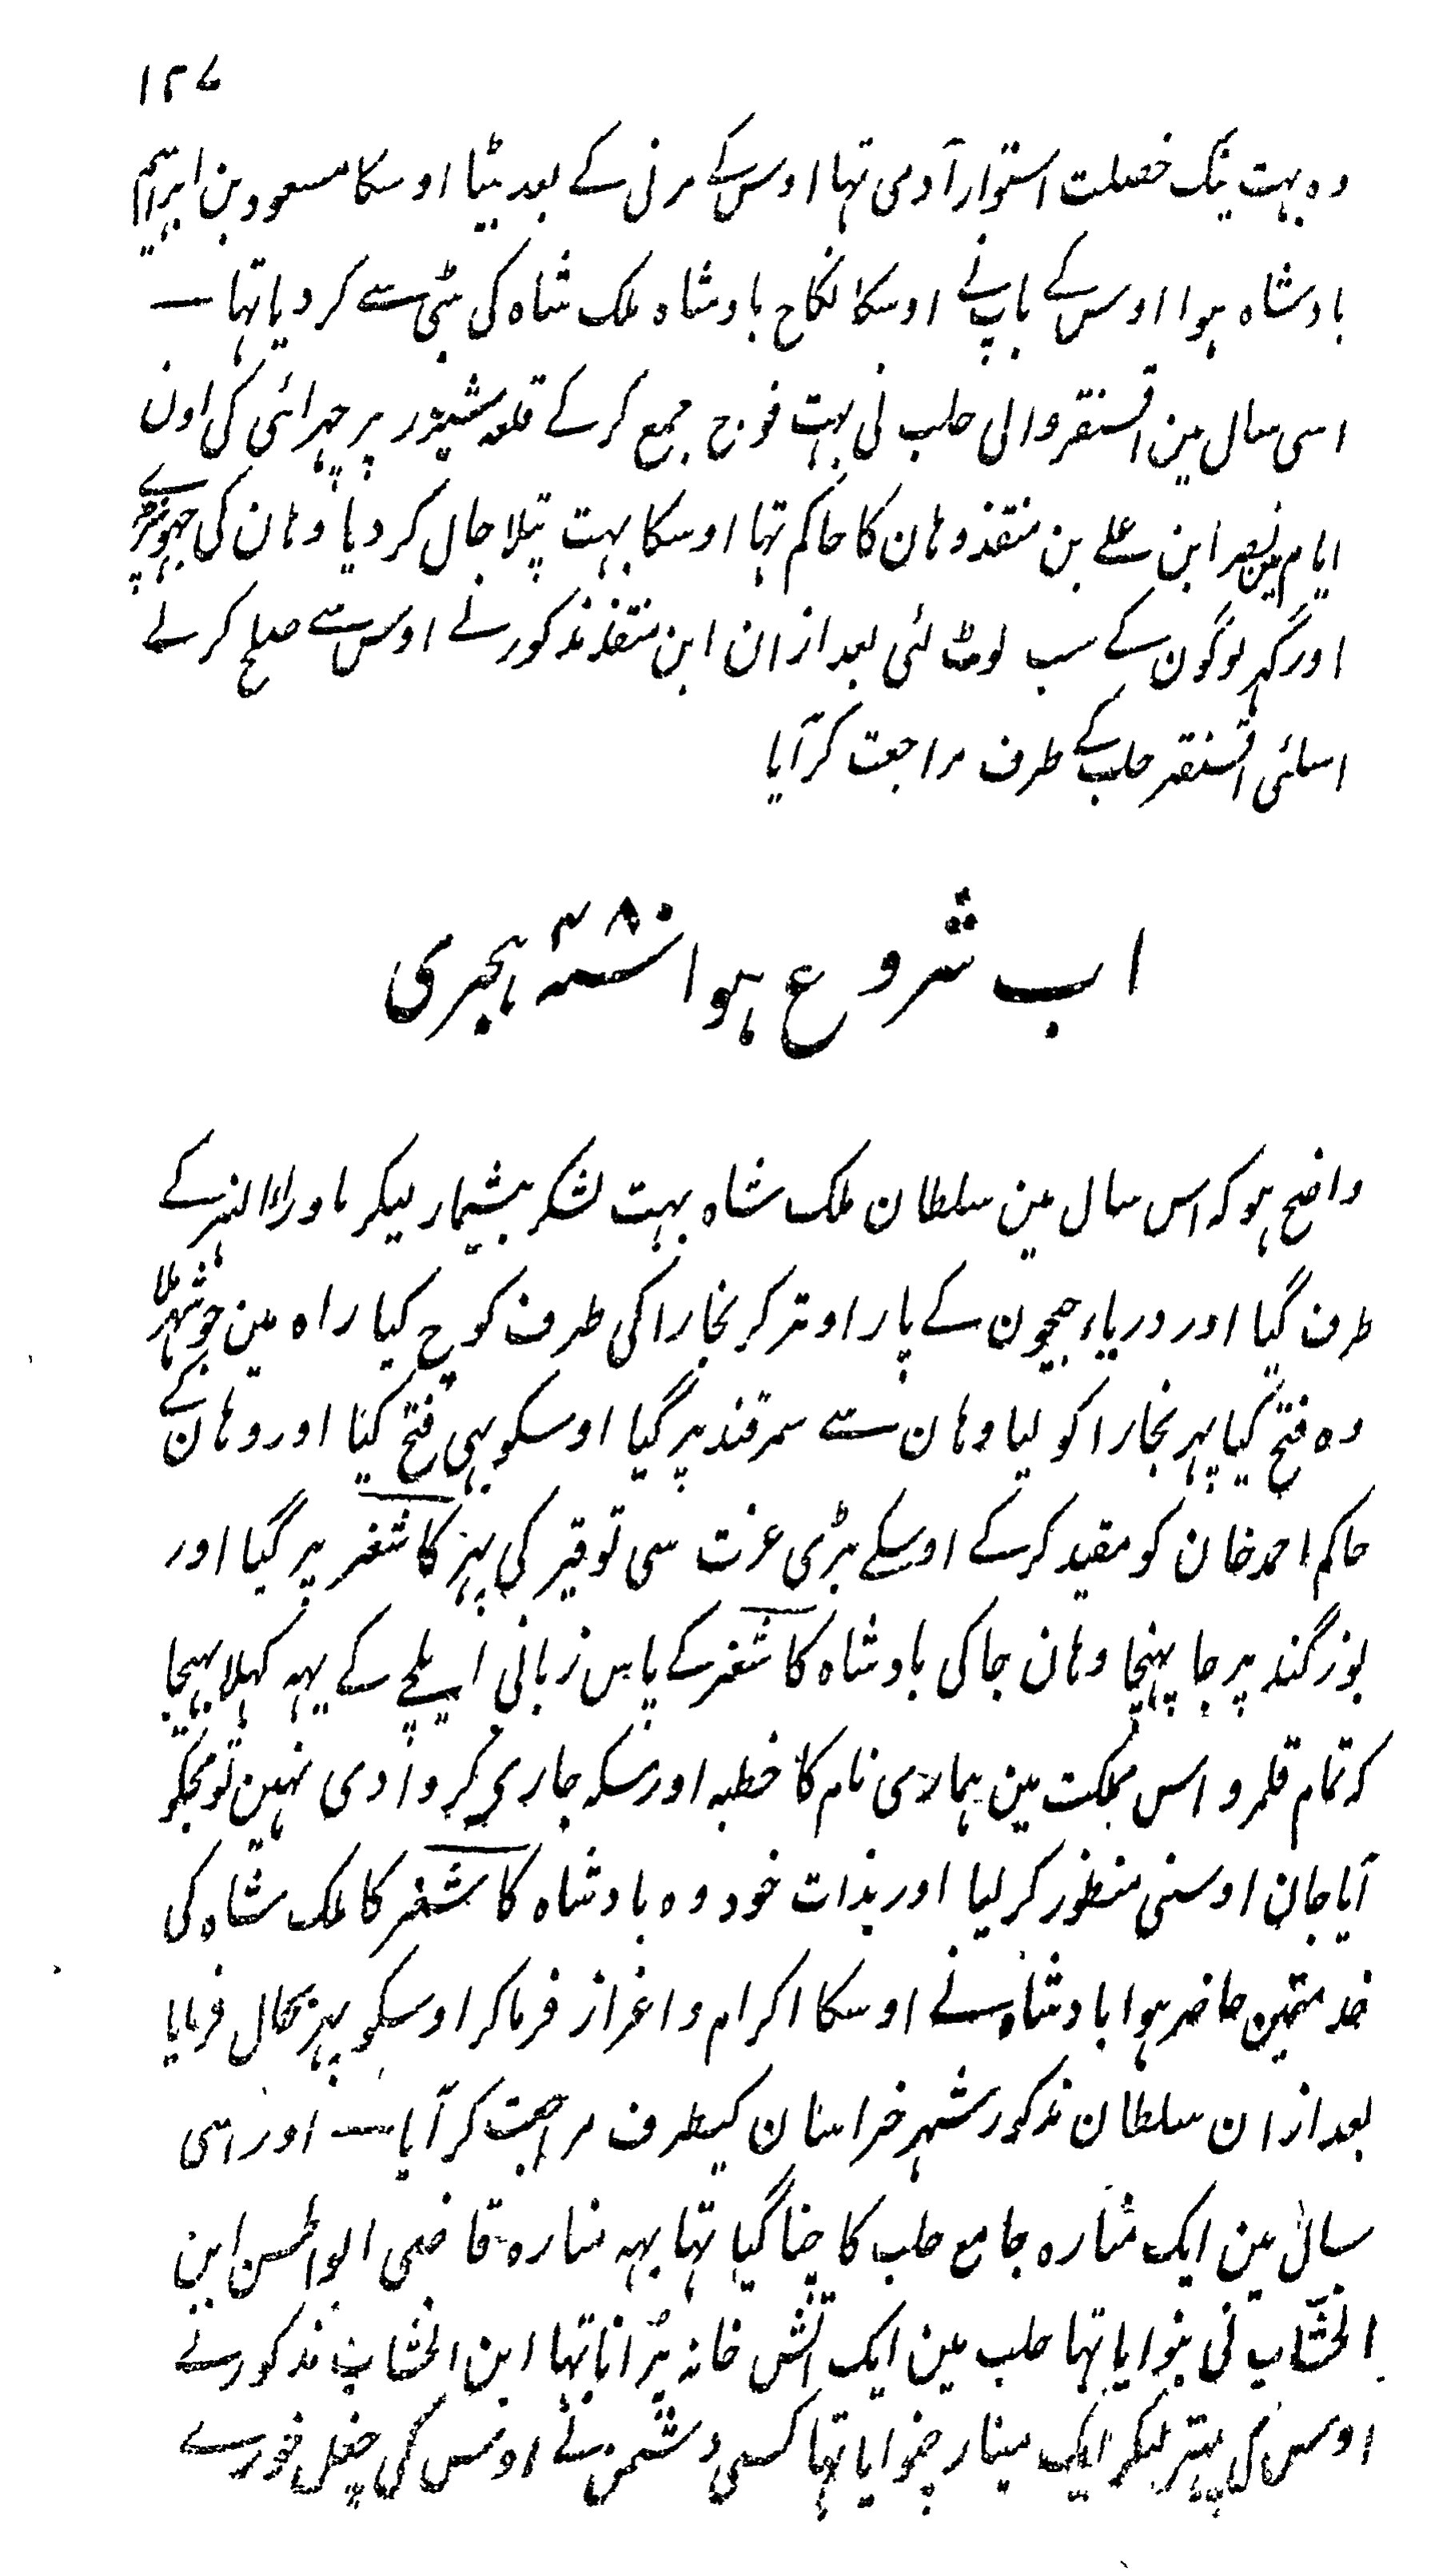 ۱۲۷
وہ بہت نیک خصلت استوار آدمی تہا اوس کے مرنی کے بعد بیٹا اوسکا مسعود بن ابراہیم
بادشاہ ہوا اوس کے باپ نے اوسکا نکاح بادشاہ ملک شاہ کی بیٹی سے کر دیا تہا —
اسی سال مین اقسنقر والی حلب نی بہت فوج جمع کر کے قلعہ شیزر پر چہرائی کی اون
ایام مین نصر ابن علے بن منقذ وہان کا حاکم تہا اوسکا بہت پتلا حال کر دیا وہان کی جہونپڑے
اور گہر لوگون کے سب لوٹ لئی بعد ازان ابن منقذ مذکور نے اوس سے صلح کر لے
اسلئی اقسنقر حلب کے طرف مراجعت کر آیا
اب شروع ہوا سنہ ۴۸۲ ہجری
واضح ہو کہ اس سال مین سلطان ملک شاہ بہت لشکر بیشمار لیکر ماوراءالنہر کے
طرف گیا اور دریاء جیحون کے پار اوتر کر بخارا کی طرف کوچ کیا راہ مین جو شہر ملا
وہ فتح کیا پہر بخارا کو لیا وہان سے سمرقند پر گیا اوسکو بہی فتح کیا اور وہان کے
حاکم احمد خان کو مقید کر کے اوسکے بڑی عزت سی توقیر کی پہر کاشغر پر گیا اور
بوزگند پر جا پہنچا وہان جا کی بادشاہ کاشغر کے پاس زبانی ایلچے کے یہہ کہلا بہیجا
کہ تمام قلمرو اس مملکت مین ہماری نام کا خطبہ اور سکہ جاری کروا دی نہین تو مجکو
آیا جان اوسنی منظور کر لیا اور بذات خود وہ بادشاہ کاشغر کا ملک شاہ کی
خدمتمین حاضر ہوا بادشاہ نے اوسکا اکرام و اعزاز فرما کر اوسکو پہر بحال فرمایا
بعد ازان سلطان مذکور شہر خراسان کیطرف مراجعت کر آیا — اور اسی
سال مین ایک منارہ جامع حلب کا چنا گیا تہا یہہ منارہ قاضی ابو الحسن ابن
الخشاب نی بنوایا تہا حلب مین ایک آتش خانہ پرانا تہا ابن الخشاب مذکور نے
اوس کی پتہر لیکر ایک مینار چنوایا تہا کسی دشمن نے اوس کی چغل خورے